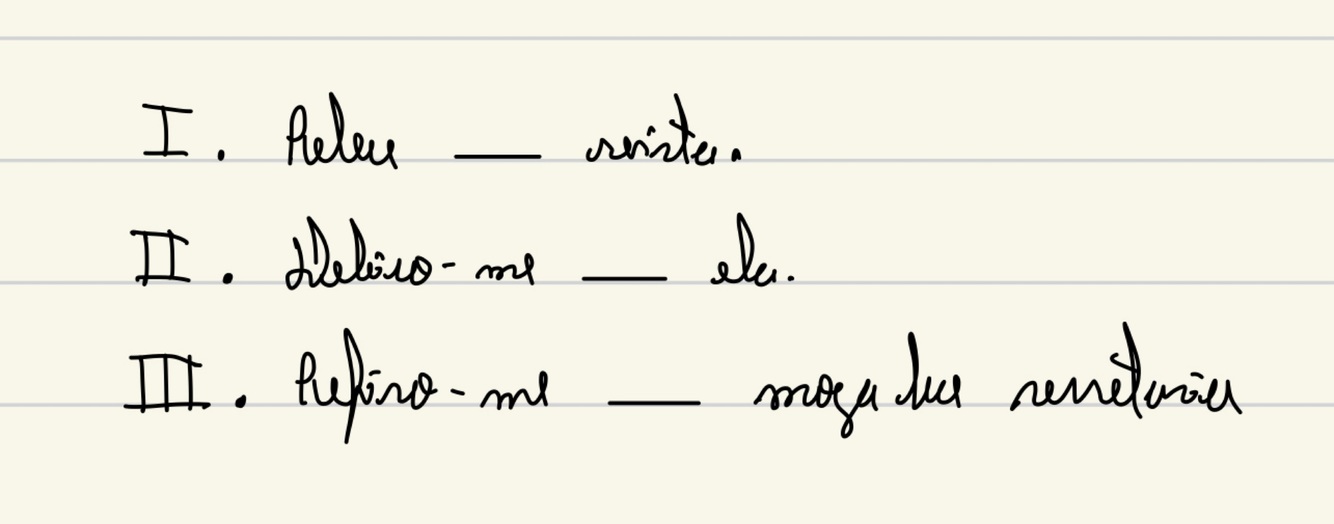 I. Releu ___ revista.
II. Refiro-me ___ ela.
III. Refiro-me ___ moça da secretaria